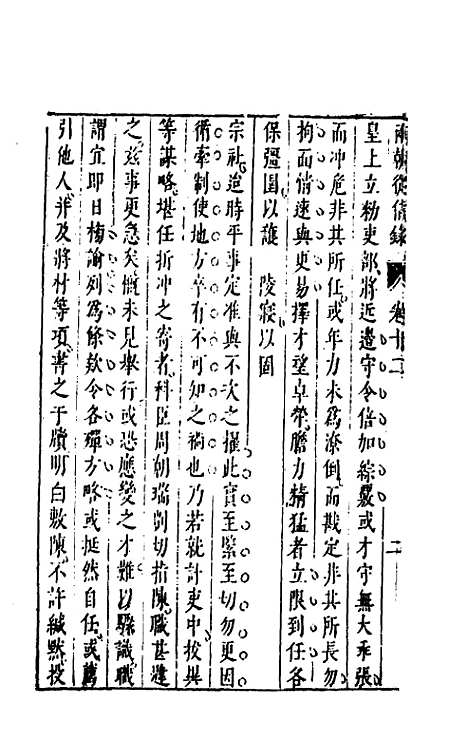 兩朝從信錄 卷十二 二
皇上立勑吏部將近邊守令倍加綜覈或才守無大乖張
而冲危非其所任或年力未為潦倒而戡定非其所長勿
拘而情速與更易擇才望卓犖膽力精猛者立限到任各
保疆圉以護 陵寢以固
宗社迨時平事定准與不次之擢此實至緊至切勿更因
循牽制使地方卒有不可知之禍也乃若就計吏中拔異
等謀略堪任折冲之寄者科臣周朝瑞剴切指陳職甚韙
之玆事更急矣慨未見舉行或恐應變之才難以驟識職
謂宜即日榜諭列為條欵令各殫方略或挺然自任或薦
引他人幷及將材等項著之于牘明白敷陳不許緘默投